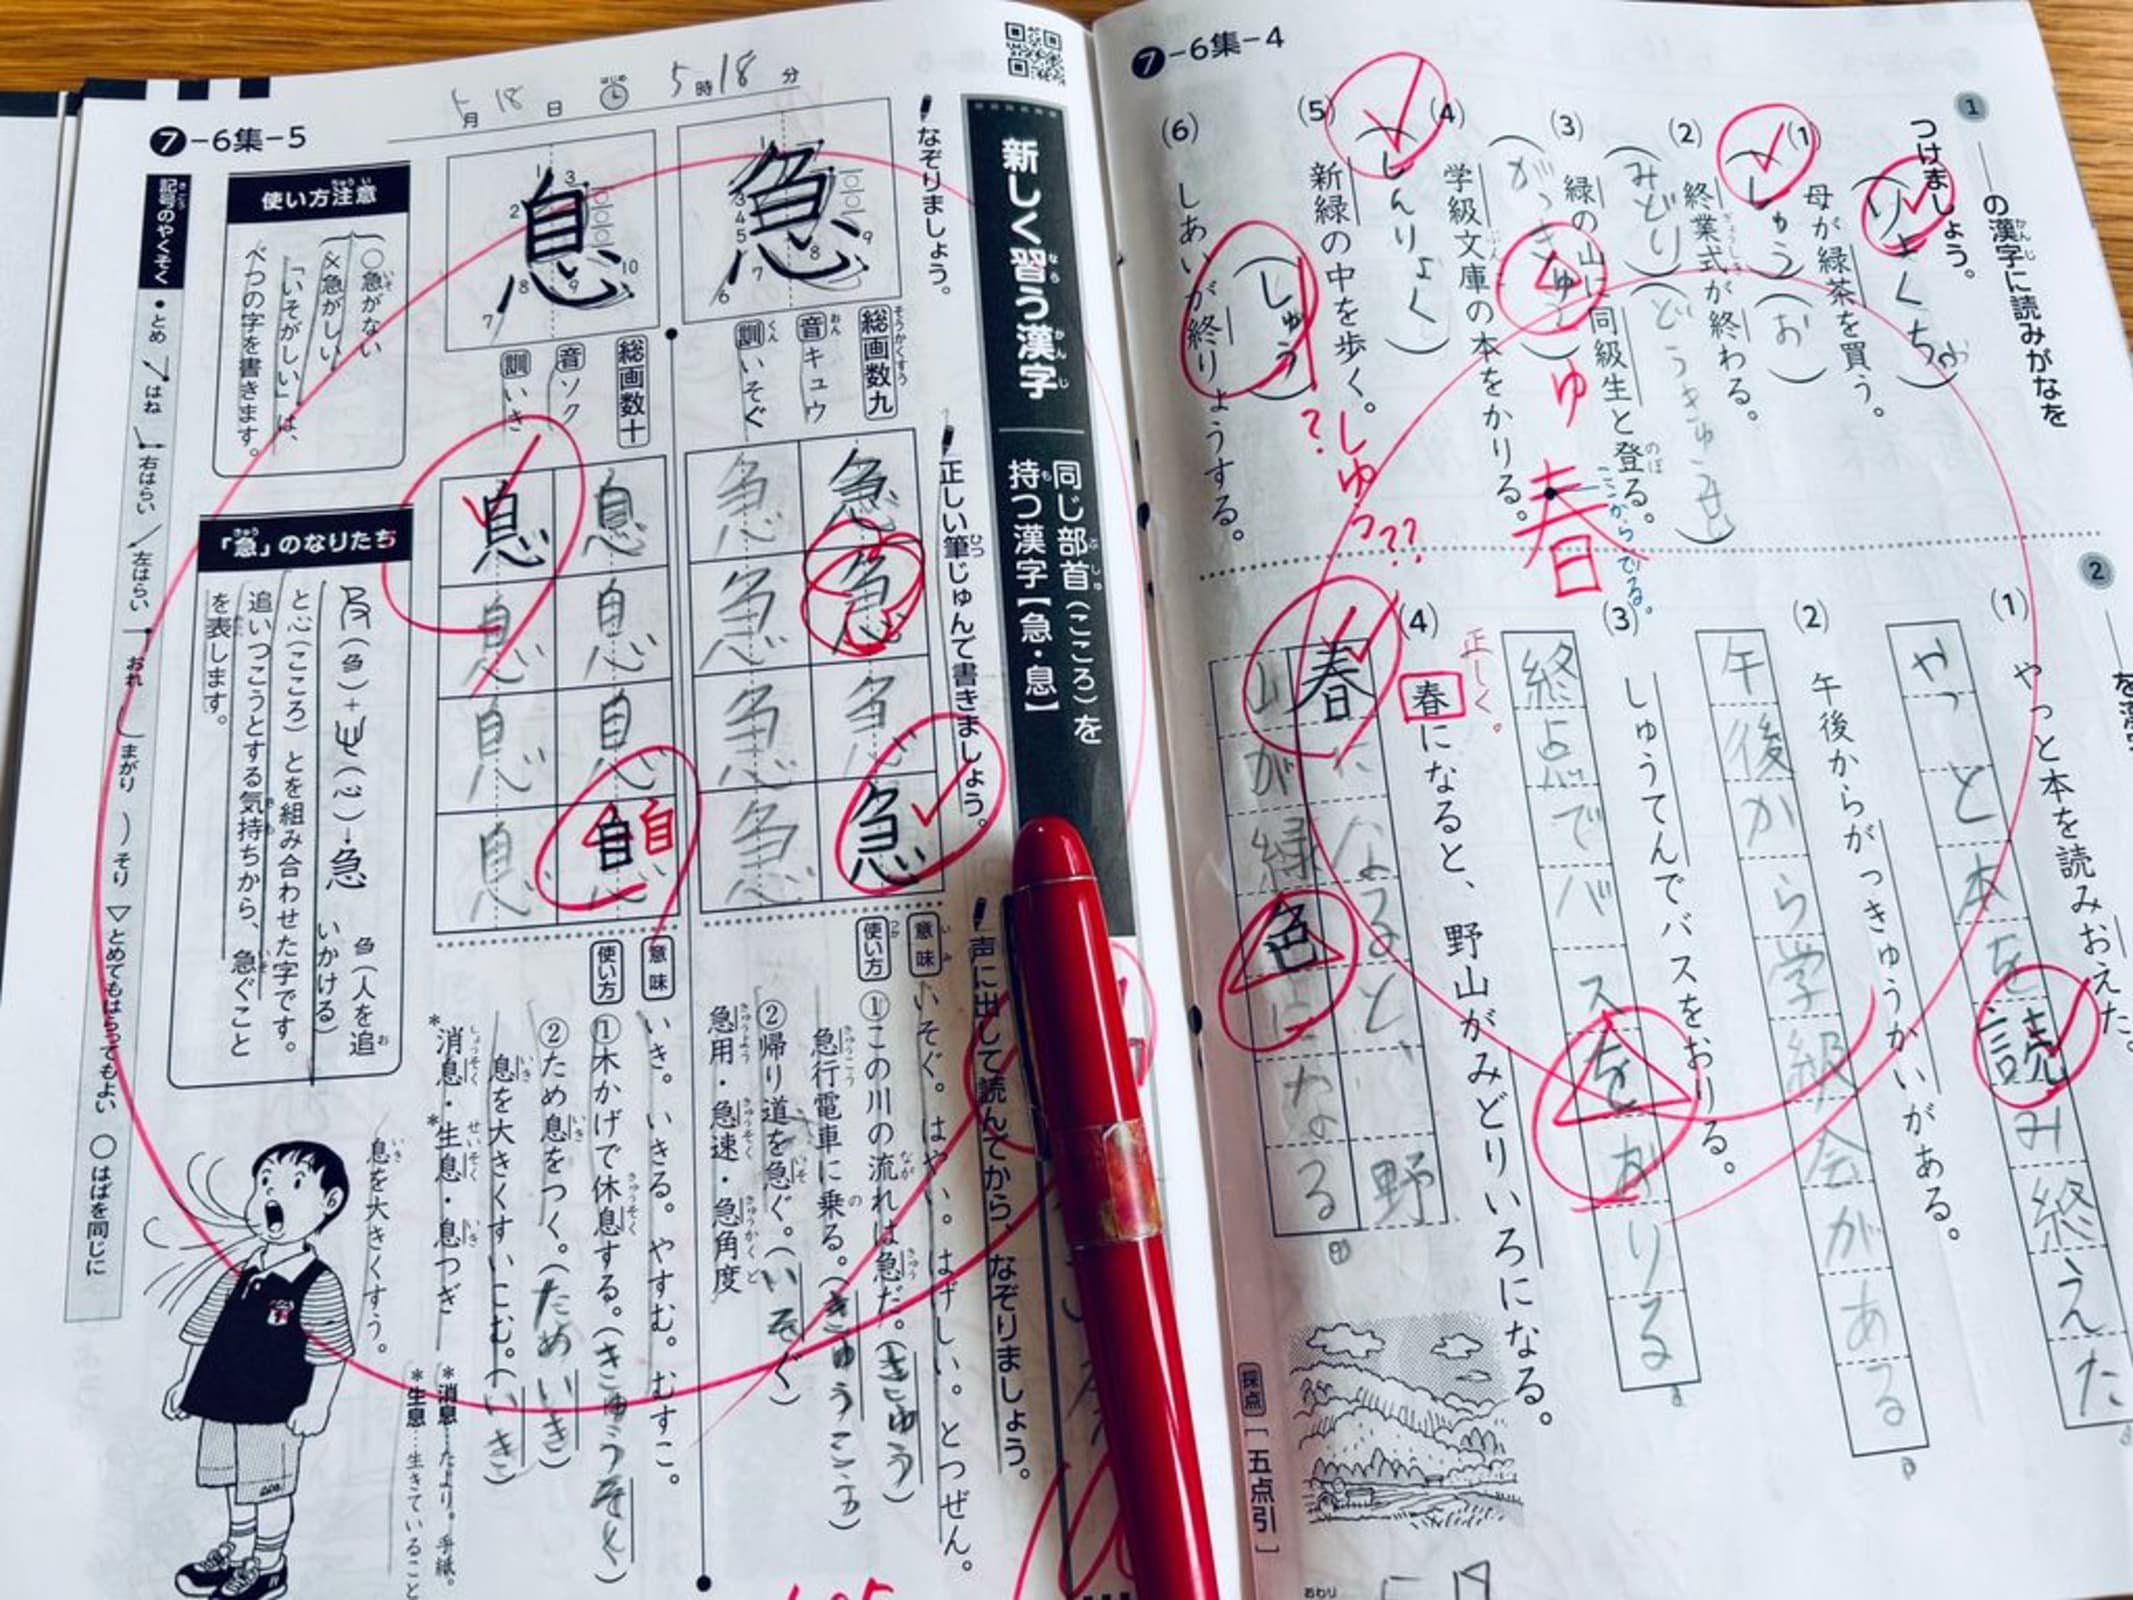 7-6集-4
1
──の漢字に読みがなを
つけましょう。
(1)
母が緑茶を買う。
(りょくちゃ)
(2)
終業式が終わる。
(しゅう)(お)
(3)
緑の山に同級生と登る。
(みどり)(どうきゅうせい)
(4)
学級文庫の本をかりる。
(がっきゅう)
ゆ
(5)
新緑の中を歩く。
(しんりょく)
(6)
しあいが終りょうする。
(しゅう)
?しゅっ??
春
ここからでる。
2
(1)
やっと本を読みおえた。
やっと本を読み終えた
(2)
午後からがっきゅうかいがある。
午後から学級会がある
(3)
しゅうてんでバスをおりる。
終点でバスをおりる
(4)
正しく。
春になると、野山がみどりいろになる。
春になると、野
山が緑色になる
採点[五点引]
おわり
7-6集-5
5月18日
はじめ
5時18分
新しく習う漢字
同じ部首(こころ)を
持つ漢字【急・息】
なぞりましょう。
急
総画数九
音キュウ
訓いそぐ
息
総画数十
音ソク
訓いき
正しい筆じゅんで書きましょう。
急急急急
急急急急
息息息息
自
息息息息
声に出して読んでから、なぞりましょう。
意味 いそぐ。はやい。はげしい。とつぜん。
使い方 ①この川の流れは急だ。(きゅう)
急行電車に乗る。(きゅうこう)
②帰り道を急ぐ。(いそぐ)
急用・急速・急角度
意味 いき。いきる。やすむ。むすこ。
使い方 ①木かげで休息する。(きゅうそく)
②ため息をつく。(ためいき)
息を大きくすいこむ。(いき)
*消息・*生息・息つぎ
*消息…たより。手紙。
*生息…生きていること
使い方注意
○急がない
×急がしい
「いそがしい」は、
べつの字を書きます。
「急」のなりたち
(及)+(心)→急
(人を追
いかける)
と心(こころ)とを組み合わせた字です。
追いつこうとする気持ちから、急ぐこと
を表します。
息を大きくすう。
記号のやくそく
・とめ はね 右はらい 左はらい おれ まがり そり ▽とめてもはらってもよい ○はばを同じに